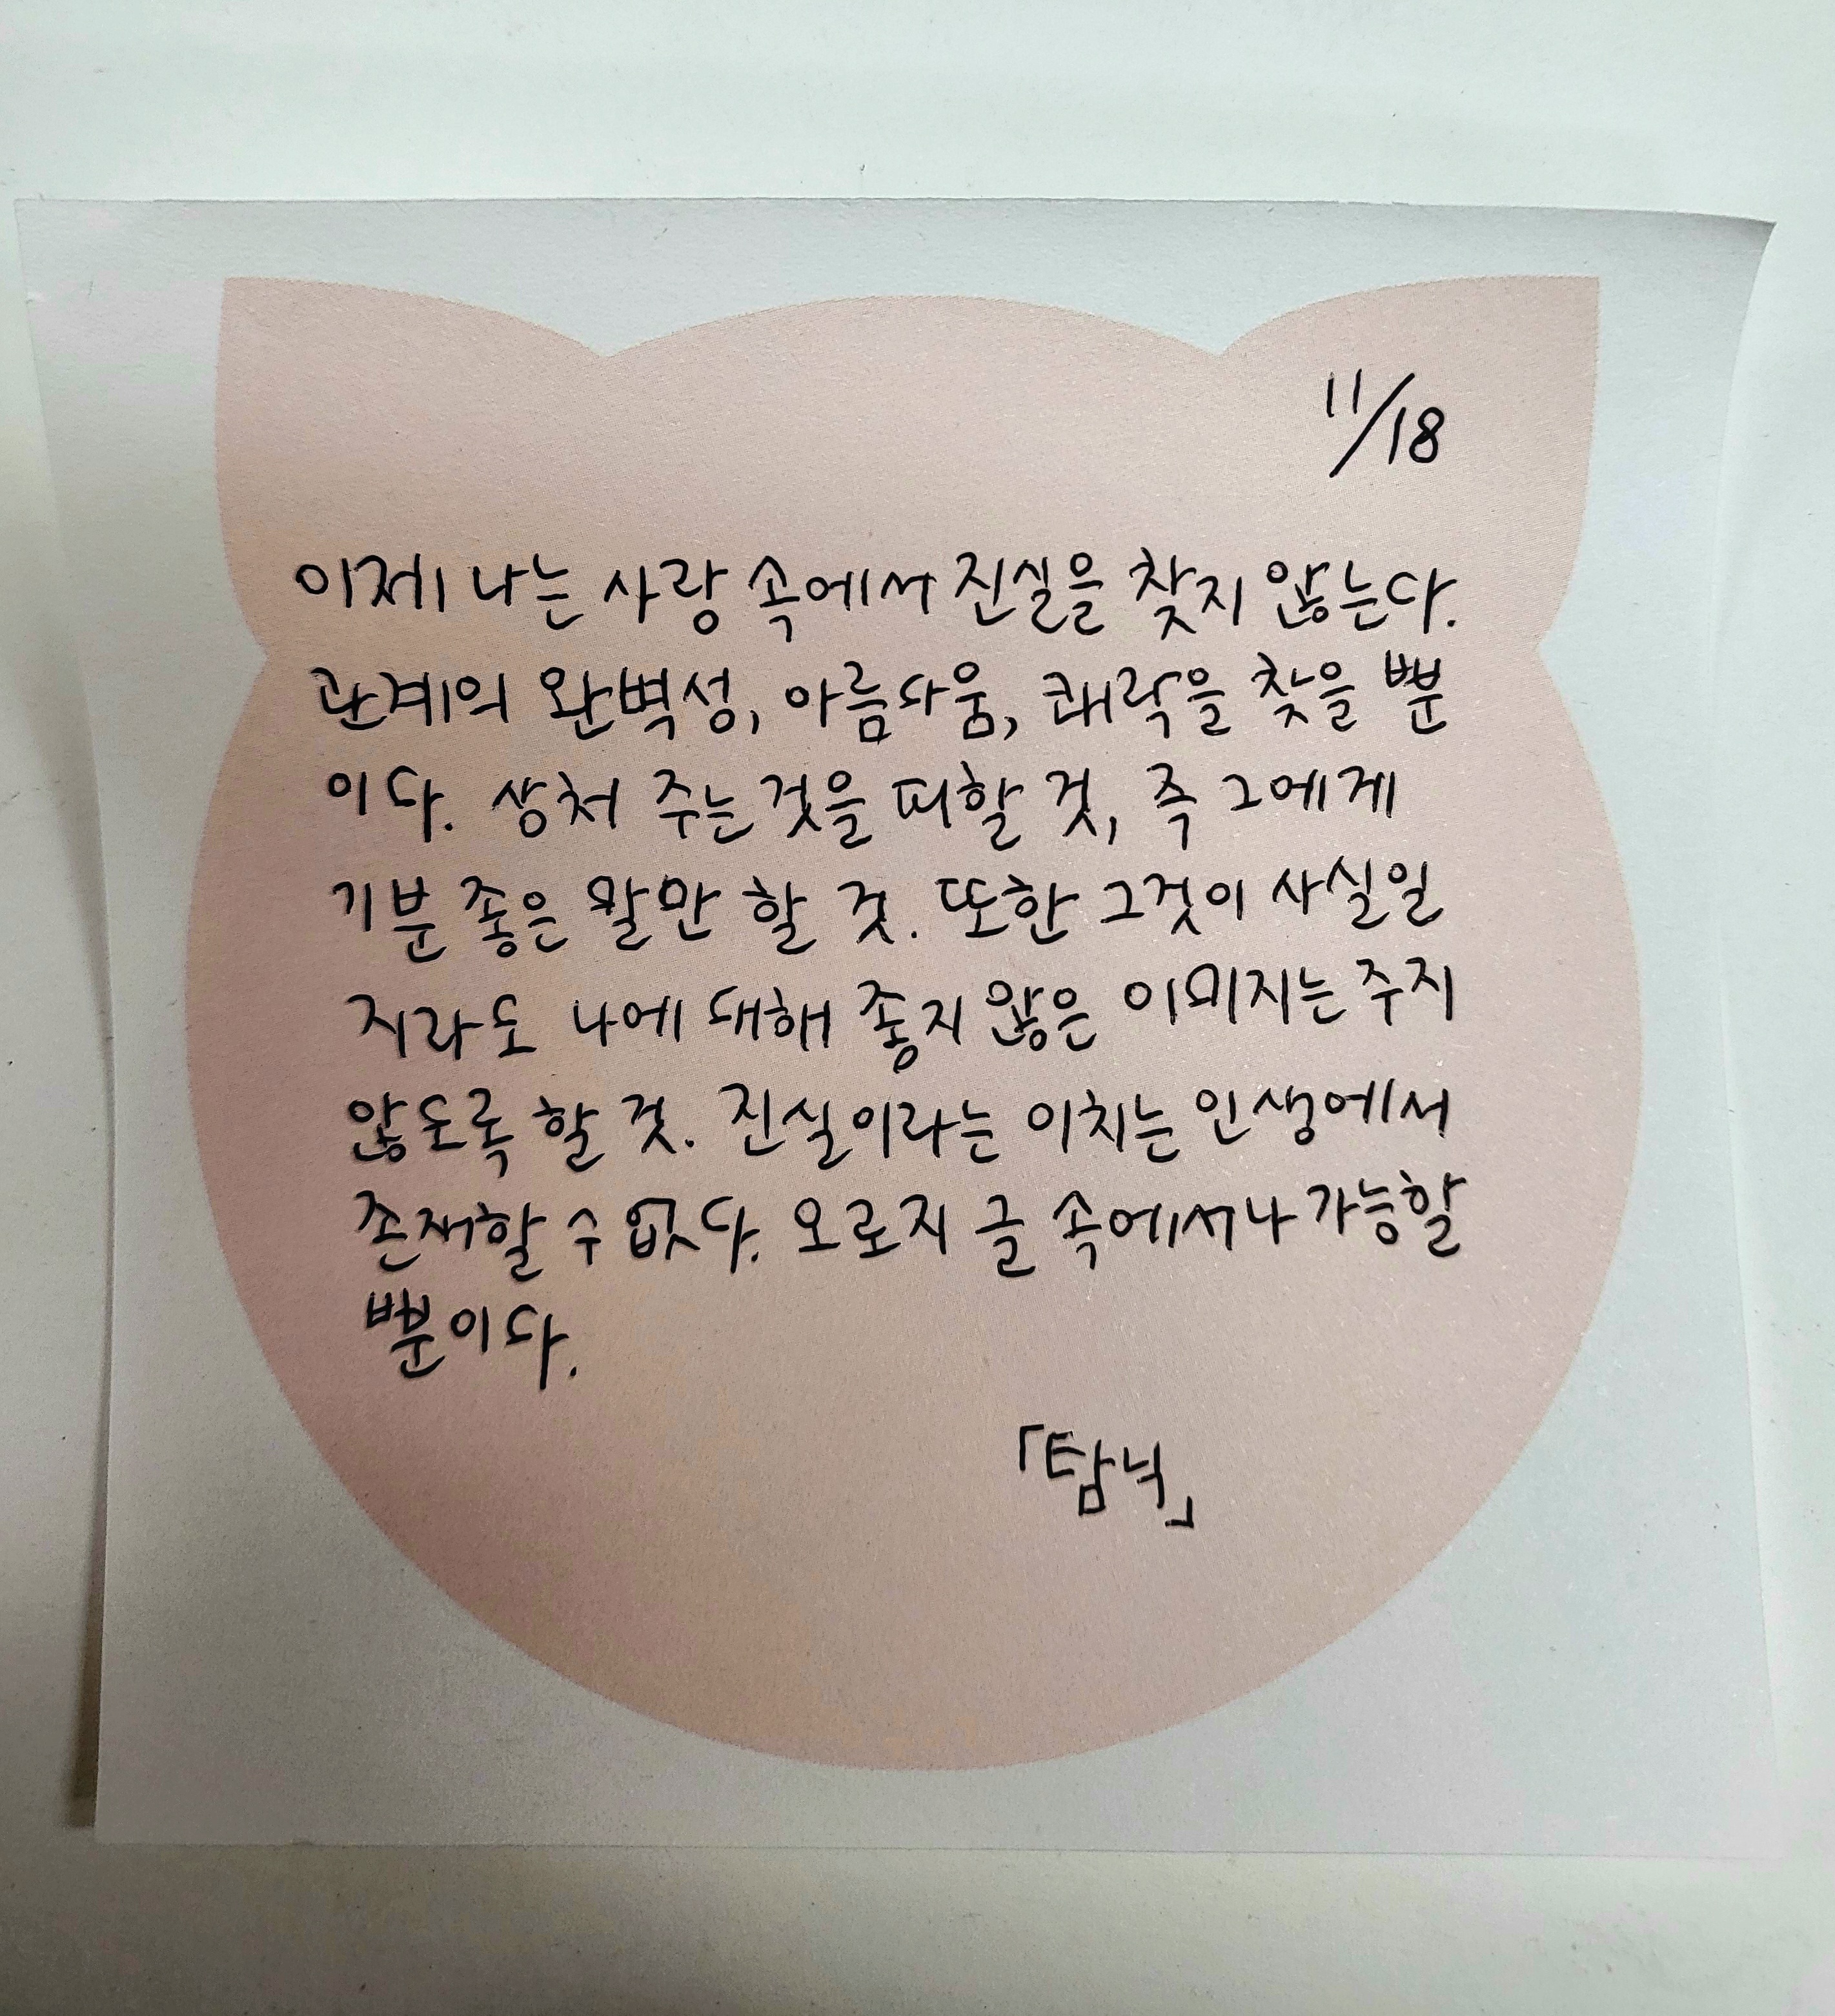 11/18
이제 나는 사랑 속에서 진실을 찾지 않는다.
관계의 완벽성, 아름다움, 쾌락을 찾을 뿐
이다. 상처 주는 것을 피할 것, 즉 그에게
기분 좋은 말만 할 것. 또한 그것이 사실일
지라도 나에 대해 좋지 않은 이미지는 주지
않도록 할 것. 진실이라는 이치는 인생에서
존재할 수 없다. 오로지 글 속에서나 가능할
뿐이다.
「탐닉」